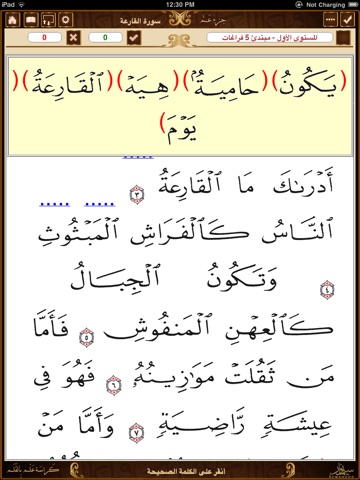 iPad 12:30 PM Not Charging
جزء عم سورة القارعة
0 0 للمستوى الأول - مبتدئ 5 فراغات
(يَكُونُ) (حَامِيَةٌۢ) (هِيَهۡ) (ٱلۡقَارِعَةُ) (يَوۡمَ)
أَدۡرَىٰكَ مَا ٱلۡقَارِعَةُ ٣ .....
..... .....
ٱلنَّاسُ كَٱلۡفَرَاشِ ٱلۡمَبۡثُوثِ
٤ وَتَكُونُ ٱلۡجِبَالُ
كَٱلۡعِهۡنِ ٱلۡمَنفُوشِ ٥ فَأَمَّا
مَن ثَقُلَتۡ مَوَٰزِينُهُۥ ٦ فَهُوَ فِي
عِيشَةٖ رَّاضِيَةٖ ٧ وَأَمَّا مَنۡ
انقر على الكلمة الصحيحة
كراسة علم بالقلم